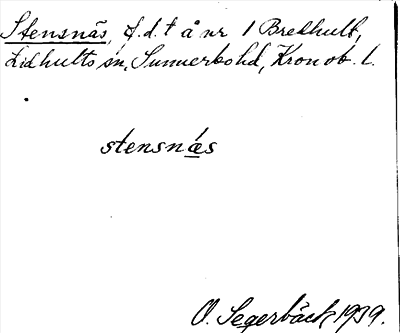 Stensnäs, f.d. t å nr 1 Bredhult,
Lidhults sn, Sunnerbo hd, Kronob. l.
stensnæs
O. Segerbäck 1939.